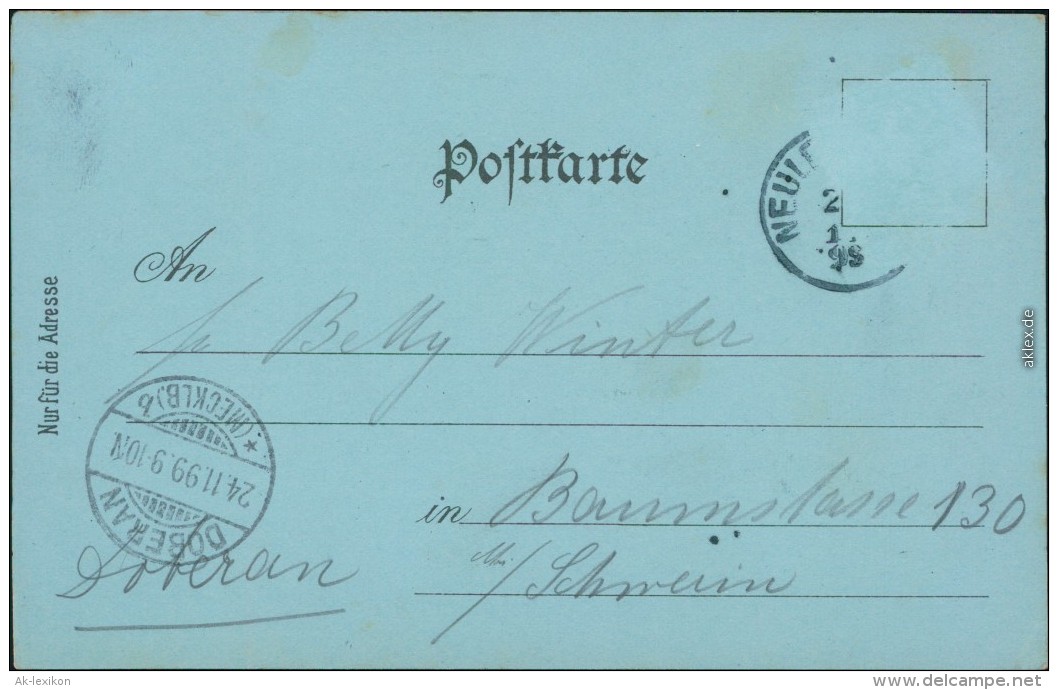 Postkarte
Nur für die Adresse
An
Betty Winter
in Baumstrasse 130
M/Schwerin
Doberan
NEUL
2
1.
98
DOBERAN
24.11.99.9-10N.
* (MECKLB). b
aklex.de
Ak-lexikon
www.delcampe.net